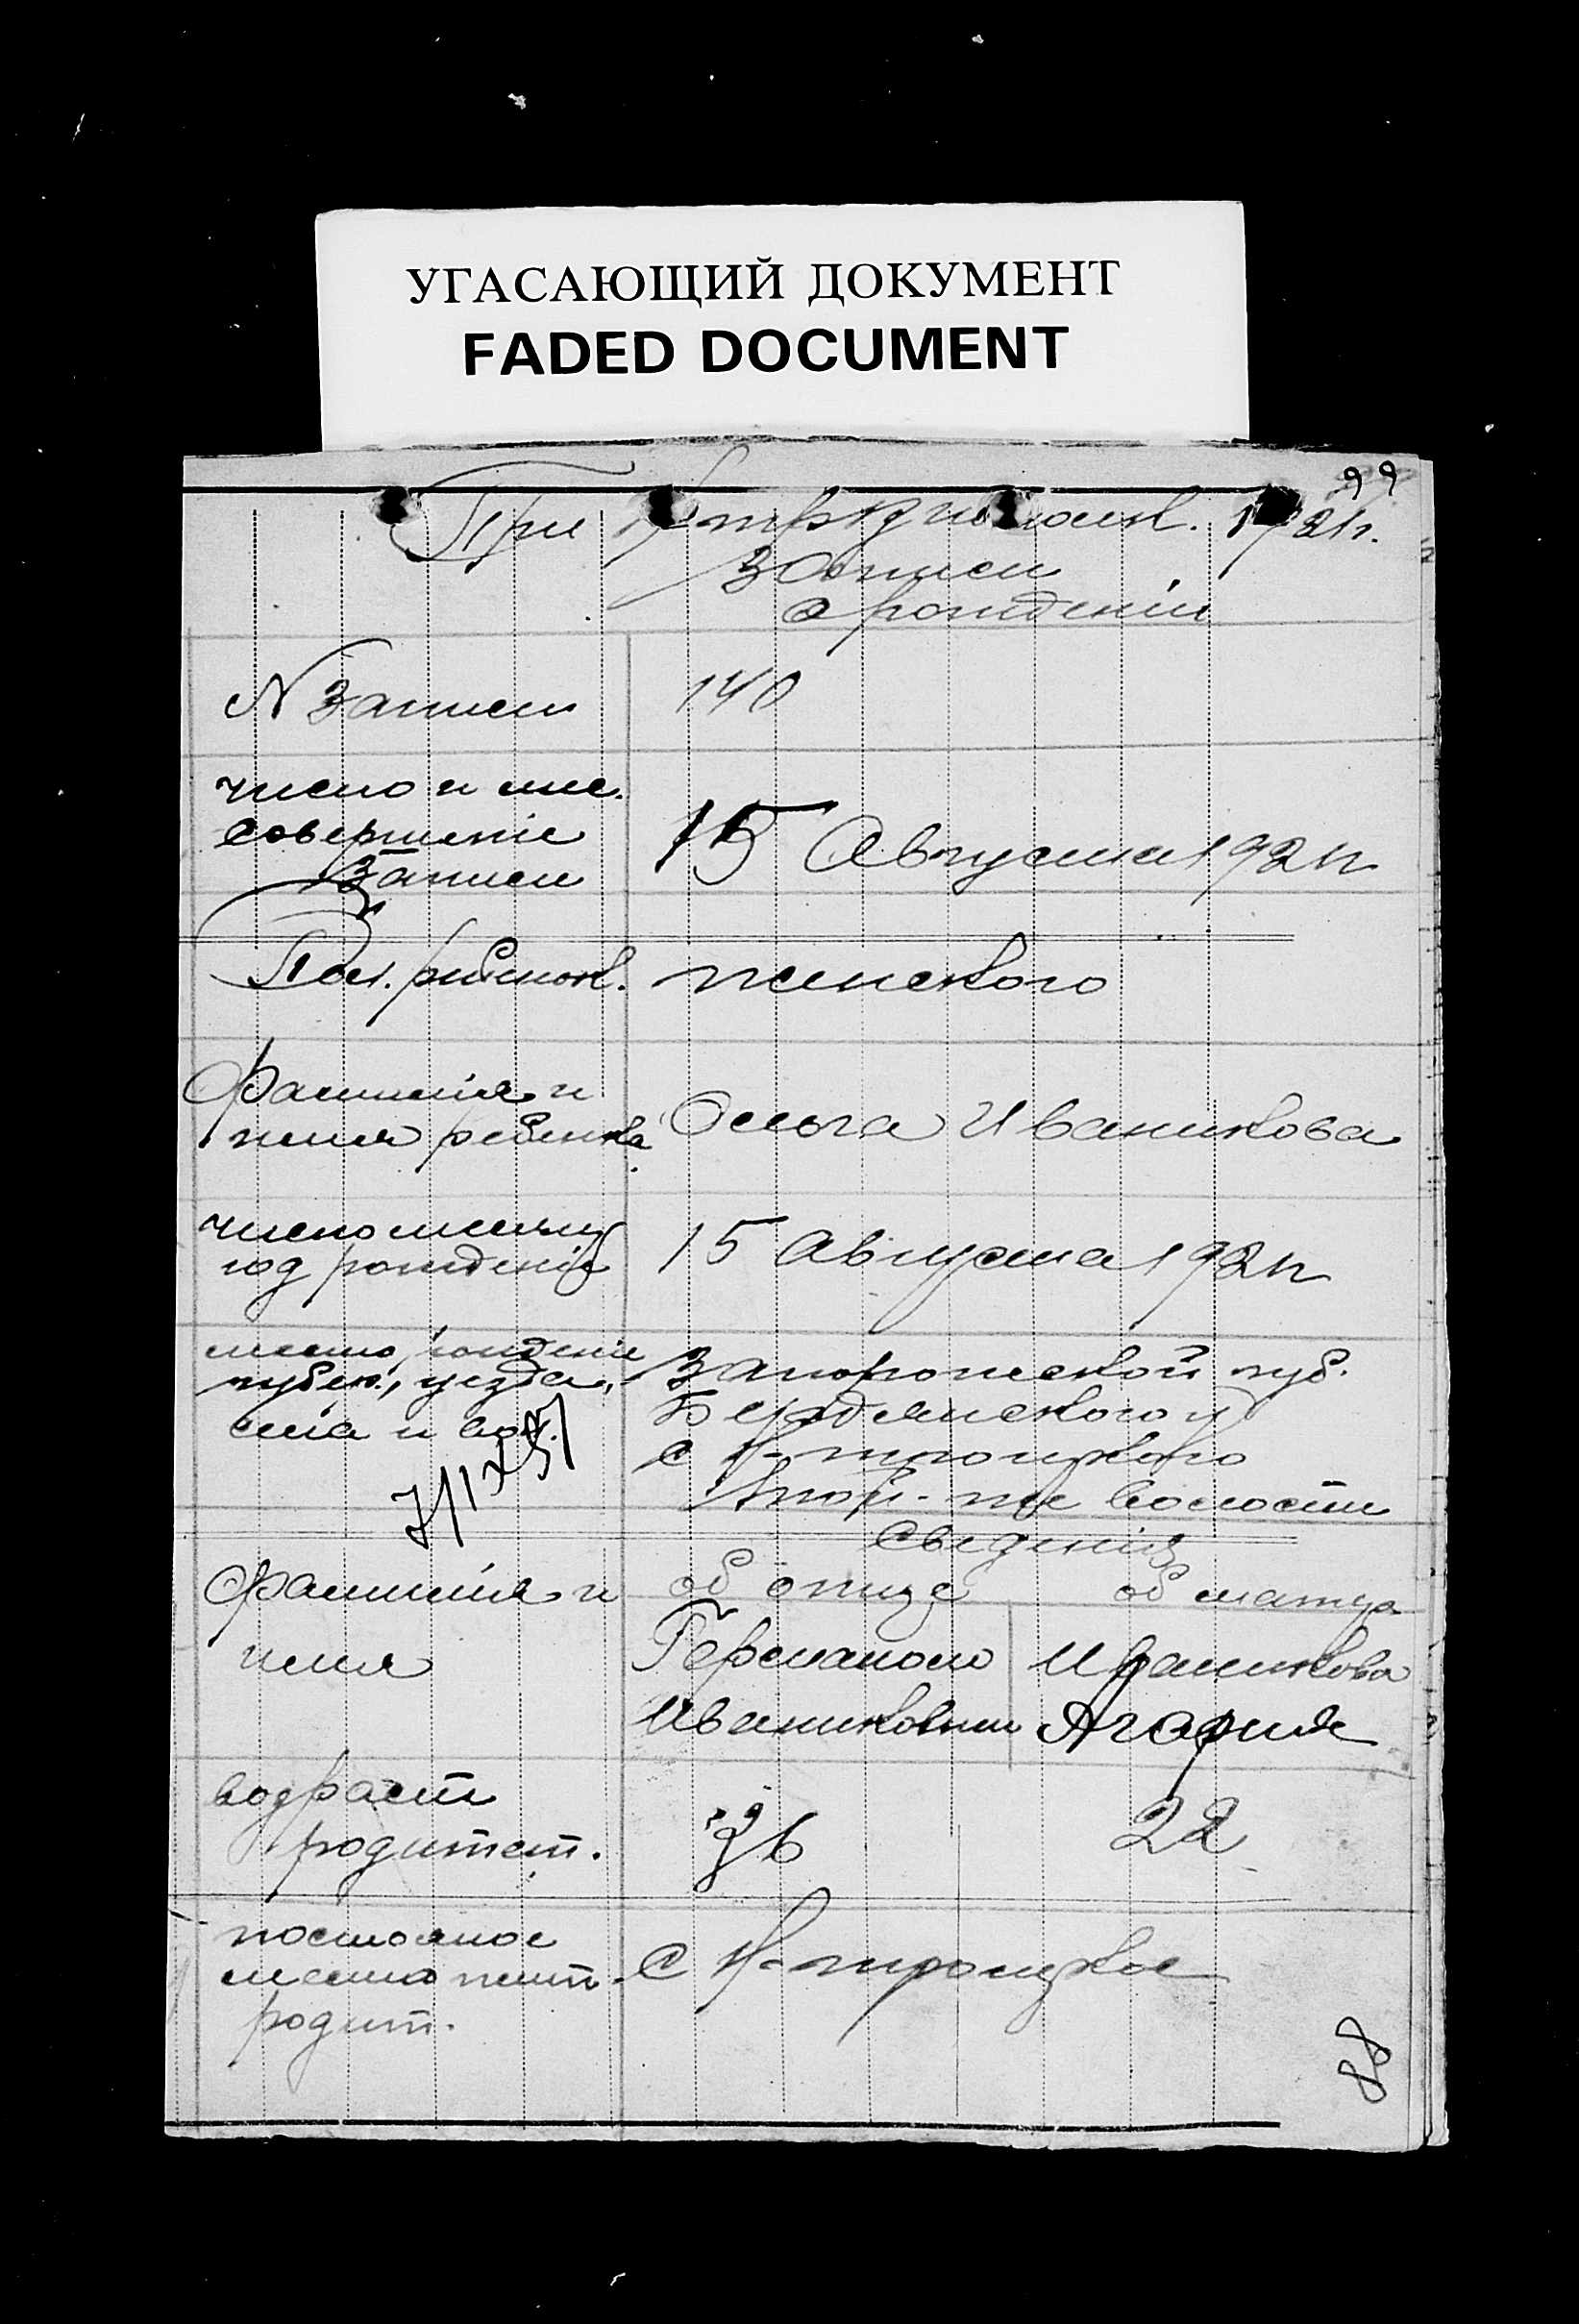 УГАСАЮЩИЙ ДОКУМЕНТ
FADED DOCUMENT
99
При 1921г.
Записи
о рождении
N Записи 140
число и мес.
совершеніе
Записи
15 Августа 1921г
Пол. ребенок. женского
Фамилія и
имя ребенка
Ольга Иваникова
число месяц
год рожденія
15 Августа 1921г
место рожденіе
губерн., уезда,
села и вол.
7/IX 57
Запорожской губ.
Бердянского у
с Н-троицкого
волости
Сведенія
Фамилія и об отце об матере
имя
Германом Иваникова
Иваниковым Агафия
возраст
родител.
36 22
постояное
место жит.
родит.
С Н-троицкое
88